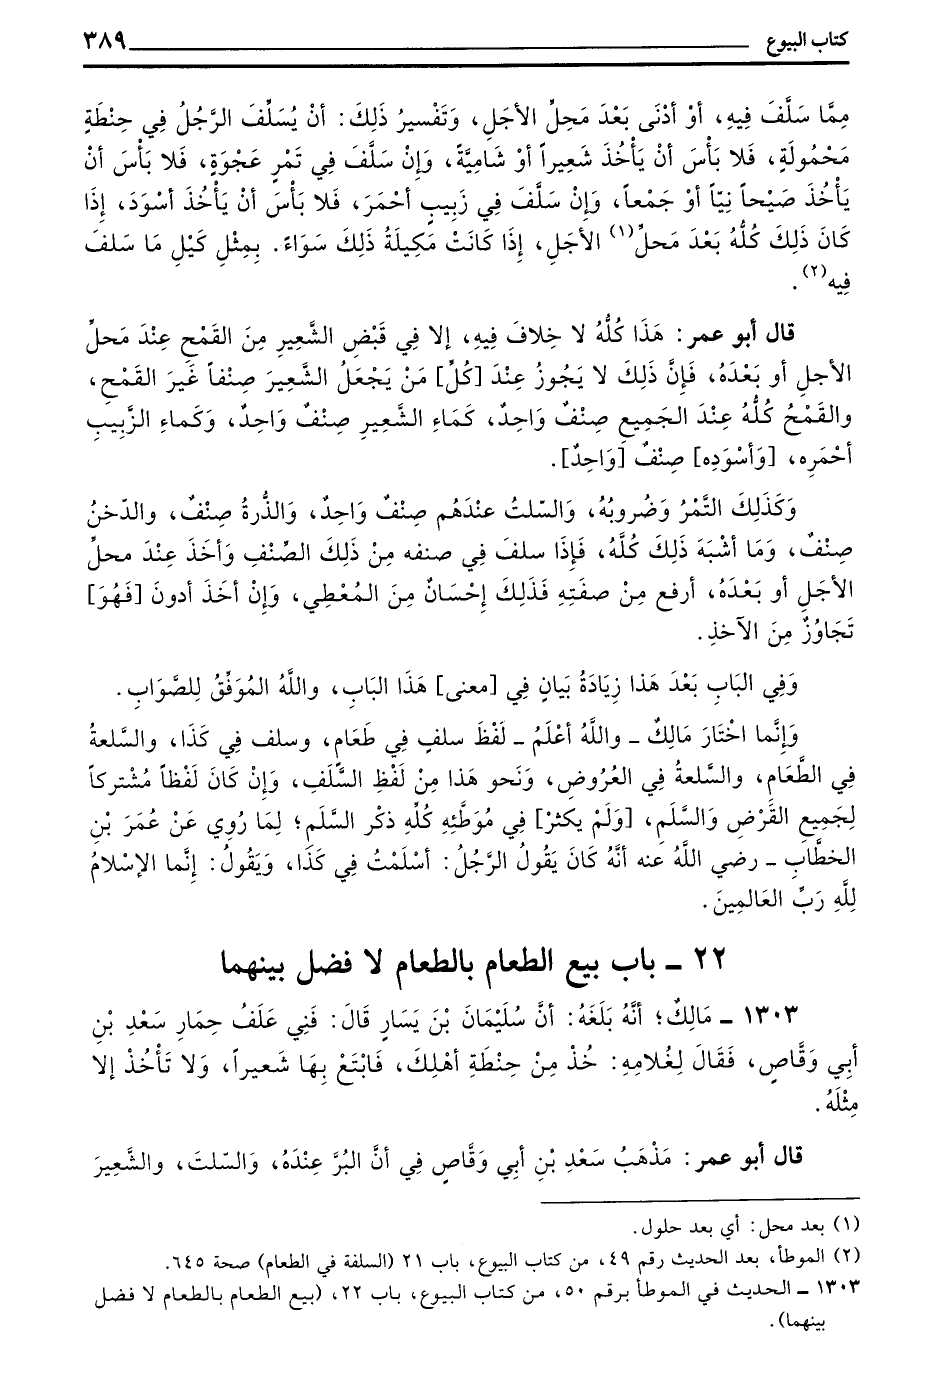 كتاب البيوع ٣٨٩
مِمَّا سَلَّفَ فِيهِ، أوْ أدْنَى بَعْدَ مَحِلِّ الأجَلِ، وَتَفْسِيرُ ذَلِكَ: أنْ يُسَلِّفَ الرَّجُلُ فِي حِنْطَةٍ
مَحْمُولَةٍ، فَلا بَأْسَ أنْ يَأْخُذَ شَعِيراً أوْ شَامِيَّةً، وَإنْ سَلَّفَ فِي تَمْرٍ عَجْوَةٍ، فَلا بَأْسَ أنْ
يَأْخُذَ صَيْحاً نِيّاً أوْ جَمْعاً، وَإنْ سَلَّفَ فِي زَبِيبٍ أحْمَرَ، فَلا بَأْسَ أنْ يَأْخُذَ أسْوَدَ، إذَا
كَانَ ذَلِكَ كُلُّهُ بَعْدَ مَحلِّ(١) الأجَلِ، إذَا كَانَتْ مَكِيلَةُ ذَلِكَ سَوَاءً. بِمِثْلِ كَيْلِ مَا سَلفَ
فِيه(٢).
قال أبو عمر: هَذَا كُلُّهُ لا خِلافَ فِيهِ، إلا فِي قَبْضِ الشَّعِيرِ مِنَ القَمْحِ عِنْدَ مَحلِّ
الأجلِ أو بَعْدَهُ، فَإنَّ ذَلِكَ لا يَجُوزُ عِنْدَ [كُلِّ] مَنْ يَجْعَلُ الشَّعِيرَ صِنْفاً غَيرَ القَمْحِ،
والقَمْحُ كُلُّهُ عِنْدَ الجَمِيعِ صِنْفٌ وَاحِدٌ، كَمَاءِ الشَّعِيرِ صِنْفٌ وَاحِدٌ، وَكَماءِ الزَّبِيبِ
أحْمَرِه، [وَأسْوَدِه] صِنْفٌ [وَاحِدٌ].
وَكَذَلِكَ التَّمْرُ وَضُروبُهُ، وَالسّلتُ عنْدَهُم صِنْفٌ وَاحِدٌ، وَالذُّرةُ صِنْفٌ، والدّخنُ
صِنْفٌ، وَمَا أشْبَهَ ذَلِكَ كُلَّهُ، فَإذَا سلفَ فِي صنفه مِنْ ذَلِكَ الصِّنْفِ وَأخَذَ عِنْدَ محلِّ
الأجَلِ أو بَعْدَهُ، أرفع مِنْ صفَتِهِ فَذَلِكَ إحْسَانٌ مِنَ المُعْطِي، وَإنْ أخَذَ أدونَ [فَهُوَ]
تَجَاوُزٌ مِنَ الآخذِ.
وَفِي البَابِ بَعْدَ هَذا زِيَادَةُ بَيَانٍ فِي [معنى] هَذَا البَابِ، واللَّهُ المُوَفِّقُ لِلصَّوَابِ.
وَإنَّما اخْتَارَ مَالِكٌ ـ واللَّهُ أعْلَمُ ـ لَفْظَ سلفٍ فِي طَعَامٍ، وسلف فِي كَذَا، والسَّلعةُ
فِي الطَّعَامِ، والسَّلعةُ فِي العُرُوضِ، وَنَحو هَذا مِنْ لَفْظِ السَّلَفِ، وَإنْ كَانَ لَفْظاً مُشْتركاً
لِجَمِيعِ القَرْضِ وَالسَّلَمِ، [وَلَمْ يكثرْ] فِي مُوَطَّئِهِ كُلِّهِ ذكْر السَّلَمِ؛ لِمَا رُوِي عَنْ عُمَرَ بْنِ
الخطَّابِ ـ رضي اللَّهُ عنه أنَّهُ كَانَ يَقُولُ الرَّجُلُ: أسْلَمْتُ فِي كَذَا، وَيَقُولُ: إنَّما الإسْلامُ
لِلَّهِ رَبِّ العَالَمِينَ.
٢٢ ـ باب بيع الطعام بالطعام لا فضل بينهما
١٣٠٣ ـ مَالِكٌ؛ أنَّهُ بَلَغَهُ: أنَّ سُلَيْمَانَ بْنَ يَسَارٍ قَالَ: فَنِي عَلَفُ حِمَارِ سَعْدِ بْنِ
أبِي وَقَّاصٍ، فَقَالَ لِغُلامِهِ: خُذْ مِنْ حِنْطَةِ أهْلِكَ، فَابْتَعْ بِهَا شَعيراً، وَلا تَأْخُذْ إلا
مِثْلَهُ.
قال أبو عمر: مَذْهَبُ سَعْدِ بْنِ أبِي وَقَّاصٍ فِي أنَّ البُرَّ عِنْدَهُ، وَالسّلتَ، والشَّعِيرَ
(١) بعد محل: أي بعد حلول.
(٢) الموطأ، بعد الحديث رقم ٤٩، من كتاب البيوع، باب ٢١ (السلفة في الطعام) صحة ٦٤٥.
١٣٠٣ ـ الحديث في الموطأ برقم ٥٠، من كتاب البيوع، باب ٢٢، (بيع الطعام بالطعام لا فضل
بينهما).